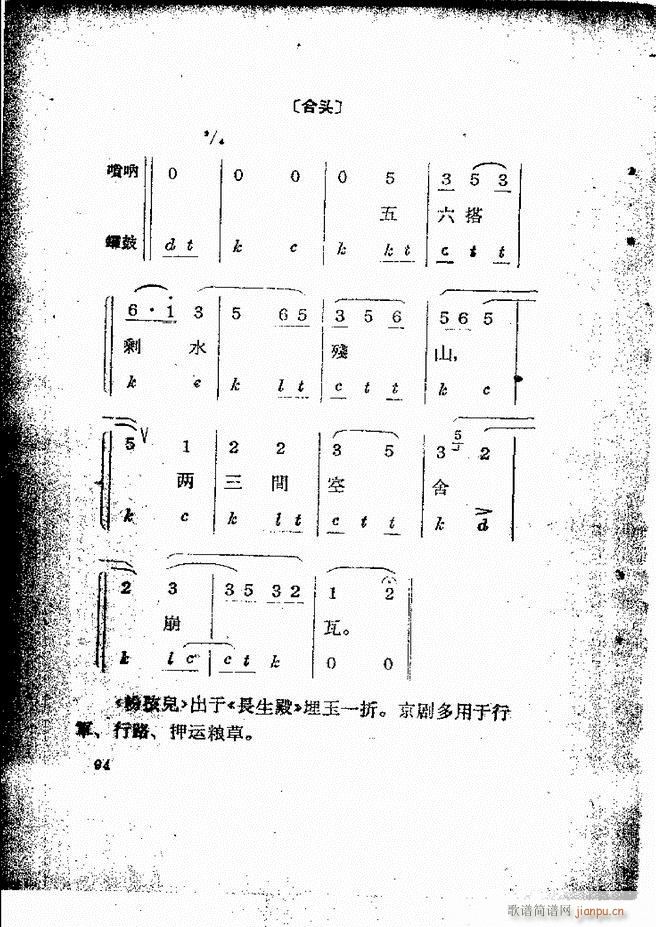 〔合头〕
²/₄
嗩吶 0 0 0 0 5 3 5 3
五 六 搭
鑼鼓 d t k c k k t c t t
6 · i 3 5 6 5 3 5 6 5 6 5
剩 水 殘 山,
k c k l t c t t k c
5 V 1 2 2 3 5 3 5 2
两 三 間 空 舍
k c k l t c t t k d
2 3 3 5 3 2 1 2
崩 瓦。
k l c c t k 0 0
《粉孩兒》出于《長生殿》埋玉一折。京剧多用于行
軍、行路、押运粮草。
94
歌谱简谱网
jianpu.cn